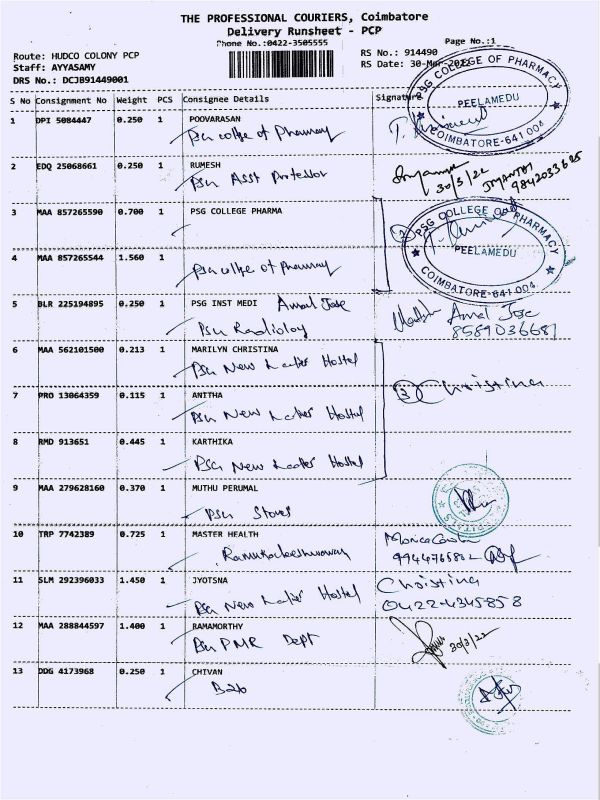 THE PROFESSIONAL COURIERS, Coimbatore
Delivery Runsheet - PCP
Phone No.:0422-3505555
Page No.:1
Route: HUDCO COLONY PCP
RS No.: 914490
Staff: AYYASAMY
RS Date: 30-Mar-2022
DRS No.: DCJB91449001
S No Consignment No Weight PCS Consignee Details Signature
1 DPI 5084447 0.250 1 POOVARASAN
PSG college of Pharmacy
PSG COLLEGE OF PHARMACY
PEELAMEDU
COIMBATORE-641 004
2 EDQ 25068661 0.250 1 RUMESH
PSG Asst Professor
30/3/22
JAYANTHI
9842033685
3 MAA 857265590 0.700 1 PSG COLLEGE PHARMA
2
PSG COLLEGE OF PHARMACY
PEELAMEDU
COIMBATORE-641 004
4 MAA 857265544 1.560 1
PSG college of Pharmacy
5 BLR 225194895 0.250 1 PSG INST MEDI Amal Jose
PSG Radiology
Amal Jose
8589036681
6 MAA 562101500 0.213 1 MARILYN CHRISTINA
PSG New Ladies Hostel
7 PRO 13064359 0.115 1 ANITHA
PSG New Ladies Hostel
3 Christina
8 RMD 913651 0.445 1 KARTHIKA
PSG New Ladies Hostel
9 MAA 279628160 0.370 1 MUTHU PERUMAL
PSG Stores
10 TRP 7742389 0.725 1 MASTER HEALTH
Monica
9944765802
11 SLM 292396033 1.450 1 JYOTSNA
PSG New Ladies Hostel
Christina
0422-4345858
12 MAA 288844597 1.400 1 RAMAMORTHY
PSG PMR Dept
30/3/22
13 DDG 4173968 0.250 1 CHIVAN